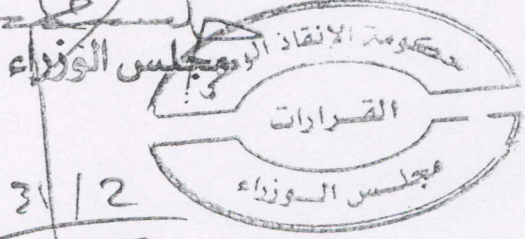 مجلس الوزراء
حكومة الإنقاذ
القرارات
مجلس الوزراء
31/2